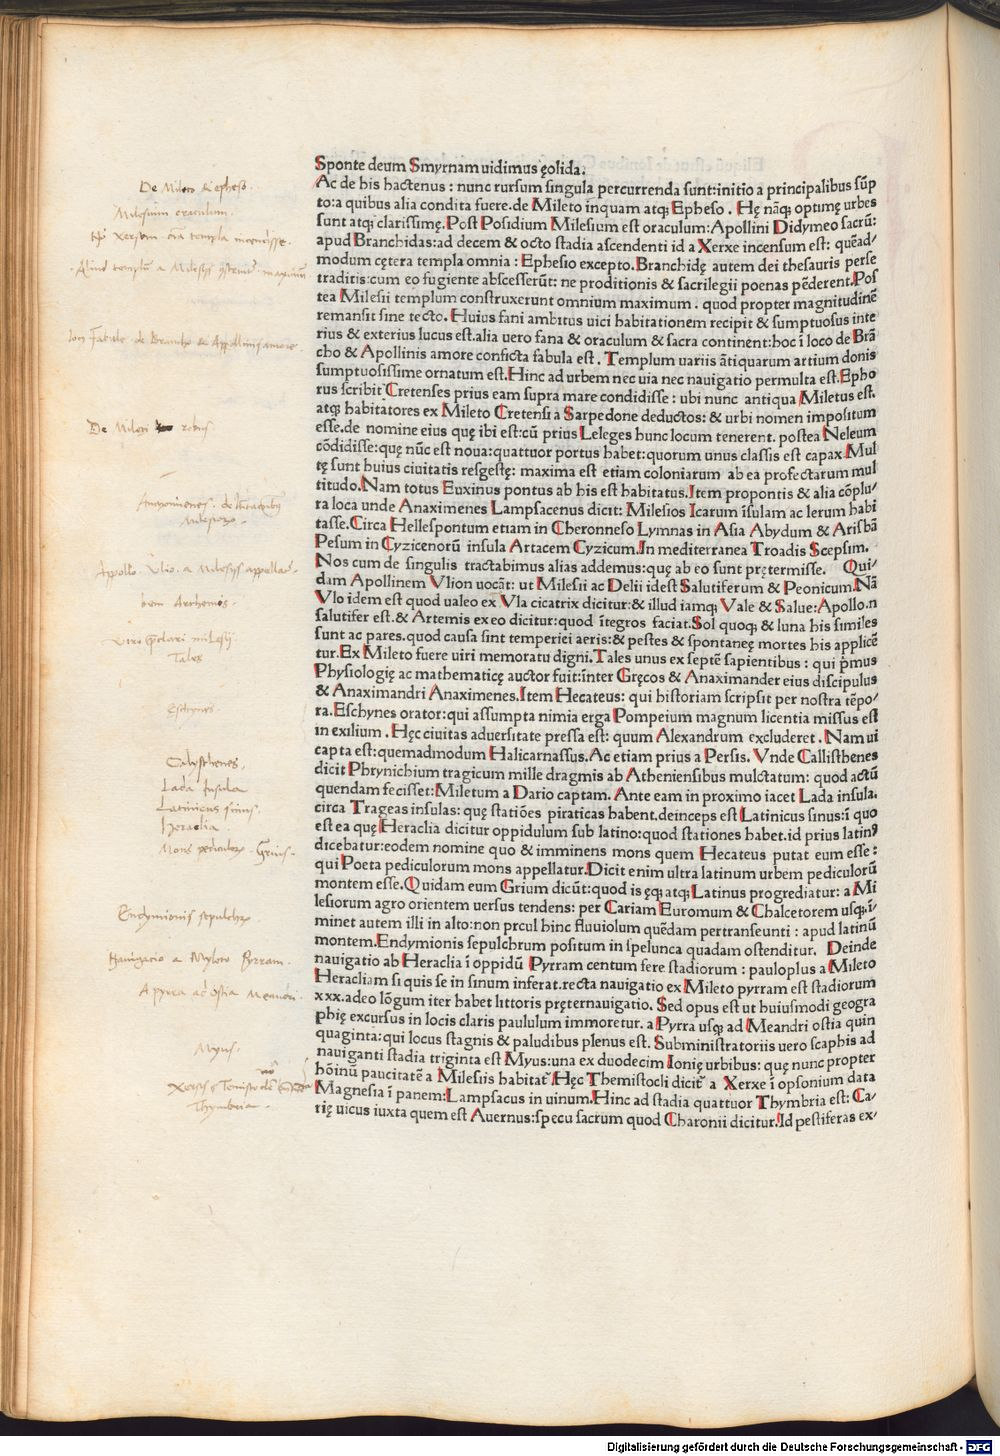 Sponte deum Smyrnam uidimus ęolida.
Ac de his hactenus : nunc rursum singula percurrenda sunt:initio a principalibus sũp
to:a quibus alia condita fuere.de Mileto inquam atqꝫ Epheso . Hę nãqꝫ optimę urbes
sunt atqꝫ clarissimę. Post Posidium Milesium est oraculum: Apollini Didymeo sacrũ:
apud Branchidas:ad decem & octo stadia ascendenti id a Xerxe incensum est: quẽad/
modum cętera templa omnia : Ephesio excepto. Branchidę autem dei thesauris perse
traditis:cum eo fugiente abscesserũt: ne proditionis & sacrilegii poenas pẽderent. Pos
tea Milesii templum construxerunt omnium maximum . quod propter magnitudinẽ
remansit sine tecto. Huius fani ambitus uici habitationem recipit & sumptuosus inte
rius & exterius lucus est.alia uero fana & oraculum & sacra continent:hoc ĩ loco de Brã
cho & Apollinis amore conficta fabula est . Templum uariis ãtiquarum artium donis
sumptuosissime ornatum est. Hinc ad urbem nec uia nec nauigatio permulta est. Epho
rus scribit Cretenses prius eam supra mare condidisse : ubi nunc antiqua Miletus est.
atqꝫ habitatores ex Mileto Cretensi a Sarpedone deductos: & urbi nomen impositum
esse.de nomine eius quę ibi est:cũ prius Leleges hunc locum tenerent. postea Neleum
cõdidisse:quę nũc est noua:quattuor portus habet:quorum unus classis est capax. Mul
tę sunt huius ciuitatis resgestę: maxima est etiam coloniarum ab ea profectarum mul
titudo. Nam totus Euxinus pontus ab his est habitatus. Item propontis & alia cõplu/
ra loca unde Anaximenes Lampsacenus dicit: Milesios Icarum ĩsulam ac lerum habi
tasse. Circa Hellespontum etiam in Cheronneso Lymnas in Asia Abydum & Arisbã
Pesum in Cyzicenorũ insula Artacem Cyzicum. In mediterranea Troadis Scepsim.
Nos cum de singulis tractabimus alias addemus:quę ab eo sunt prętermisse. Qui/
dam Apollinem Vlion uocãt: ut Milesii ac Delii idest Salutiferum & Peonicum. Nã
Vlo idem est quod ualeo ex Vla cicatrix dicitur:& illud iamqꝫ Vale & Salue: Apollo.n
salutifer est.& Artemis ex eo dicitur:quod ĩtegros faciat. Sol quoqꝫ & luna his similes
sunt ac pares.quod causa sint temperiei aeris:& pestes & spontaneę mortes his applicẽ
tur. Ex Mileto fuere uiri memoratu digni. Tales unus ex septẽ sapientibus : qui p̃mus
Physiologię ac mathematicę auctor fuit:ĩnter Gręcos & Anaximander eius discipulus
& Anaximandri Anaximenes. Item Hecateus: qui historiam scripsit per nostra tẽpo/
ra. Eschynes orator:qui assumpta nimia erga Pompeium magnum licentia missus est
in exilium . Hęc ciuitas aduersitate pressa est: quum Alexandrum excluderet . Nam ui
capta est:quemadmodum Halicarnassus. Ac etiam prius a Persis. Vnde Callisthenes
dicit Phrynichium tragicum mille dragmis ab Atheniensibus mulctatum: quod actũ
quendam fecisset: Miletum a Dario captam. Ante eam in proximo iacet Lada insula.
circa Trageas insulas: quę statiões piraticas habent.deinceps est Latinicus sinus:ĩ quo
est ea quę Heraclia dicitur oppidulum sub latino:quod stationes habet.id prius latinꝰ
dicebatur:eodem nomine quo & imminens mons quem Hecateus putat eum esse :
qui Poeta pediculorum mons appellatur. Dicit enim ultra latinum urbem pediculorũ
montem esse. Quidam eum Grium dicũt:quod is ęqꝫ atqꝫ Latinus progrediatur: a Mi
lesiorum agro orientem uersus tendens: per Cariam Euromum & Chalcetorem usqꝫ.ĩ/
minet autem illi in alto:non prcul hinc fluuiolum quẽdam pertranseunti : apud latinũ
montem. Endymionis sepulchrum positum in spelunca quadam ostenditur. Deinde
nauigatio ab Heraclia ĩ oppidũ Pyrram centum fere stadiorum : pauloplus a Mileto
Heracliam si quis se in sinum inferat.recta nauigatio ex Mileto pyrram est stadiorum
xxx.adeo lõgum iter habet littoris pręternauigatio. Sed opus est ut huiusmodi geogra
phię excursus in locis claris paululum immoretur. a Pyrra usqꝫ ad Meandri ostia quin
quaginta:qui locus stagnis & paludibus plenus est. Subministratoriis uero scaphis ad
nauiganti stadia triginta est Myus:una ex duodecim Ionię urbibus: quę nunc propter
hõinũ paucitatẽ a Milesiis habitat̃. Hęc Themistocli dicit̃ a Xerxe ĩ opsonium data
Magnesia ĩ panem: Lampsacus in uinum. Hinc ad stadia quattuor Thymbria est: Ca/
rię uicus iuxta quem est Auernus:specu sacrum quod Charonii dicitur. Id pestiferas ex/
De Mileto & epheso.
Milesium oraculum.
Apollo. Vlio. a Milesijs appellat̃.
Tales
Eschynes.
Calysthenes.
Lada Insula
Latinicus sinus.
Heraclia.
Endymionis sepulchrum
Nauigacio a Myleto Pyrram.
A pyrra ad ostia Meandri.
Myus.
Thymbria.
Digitalisierung gefördert durch die Deutsche Forschungsgemeinschaft - DFG